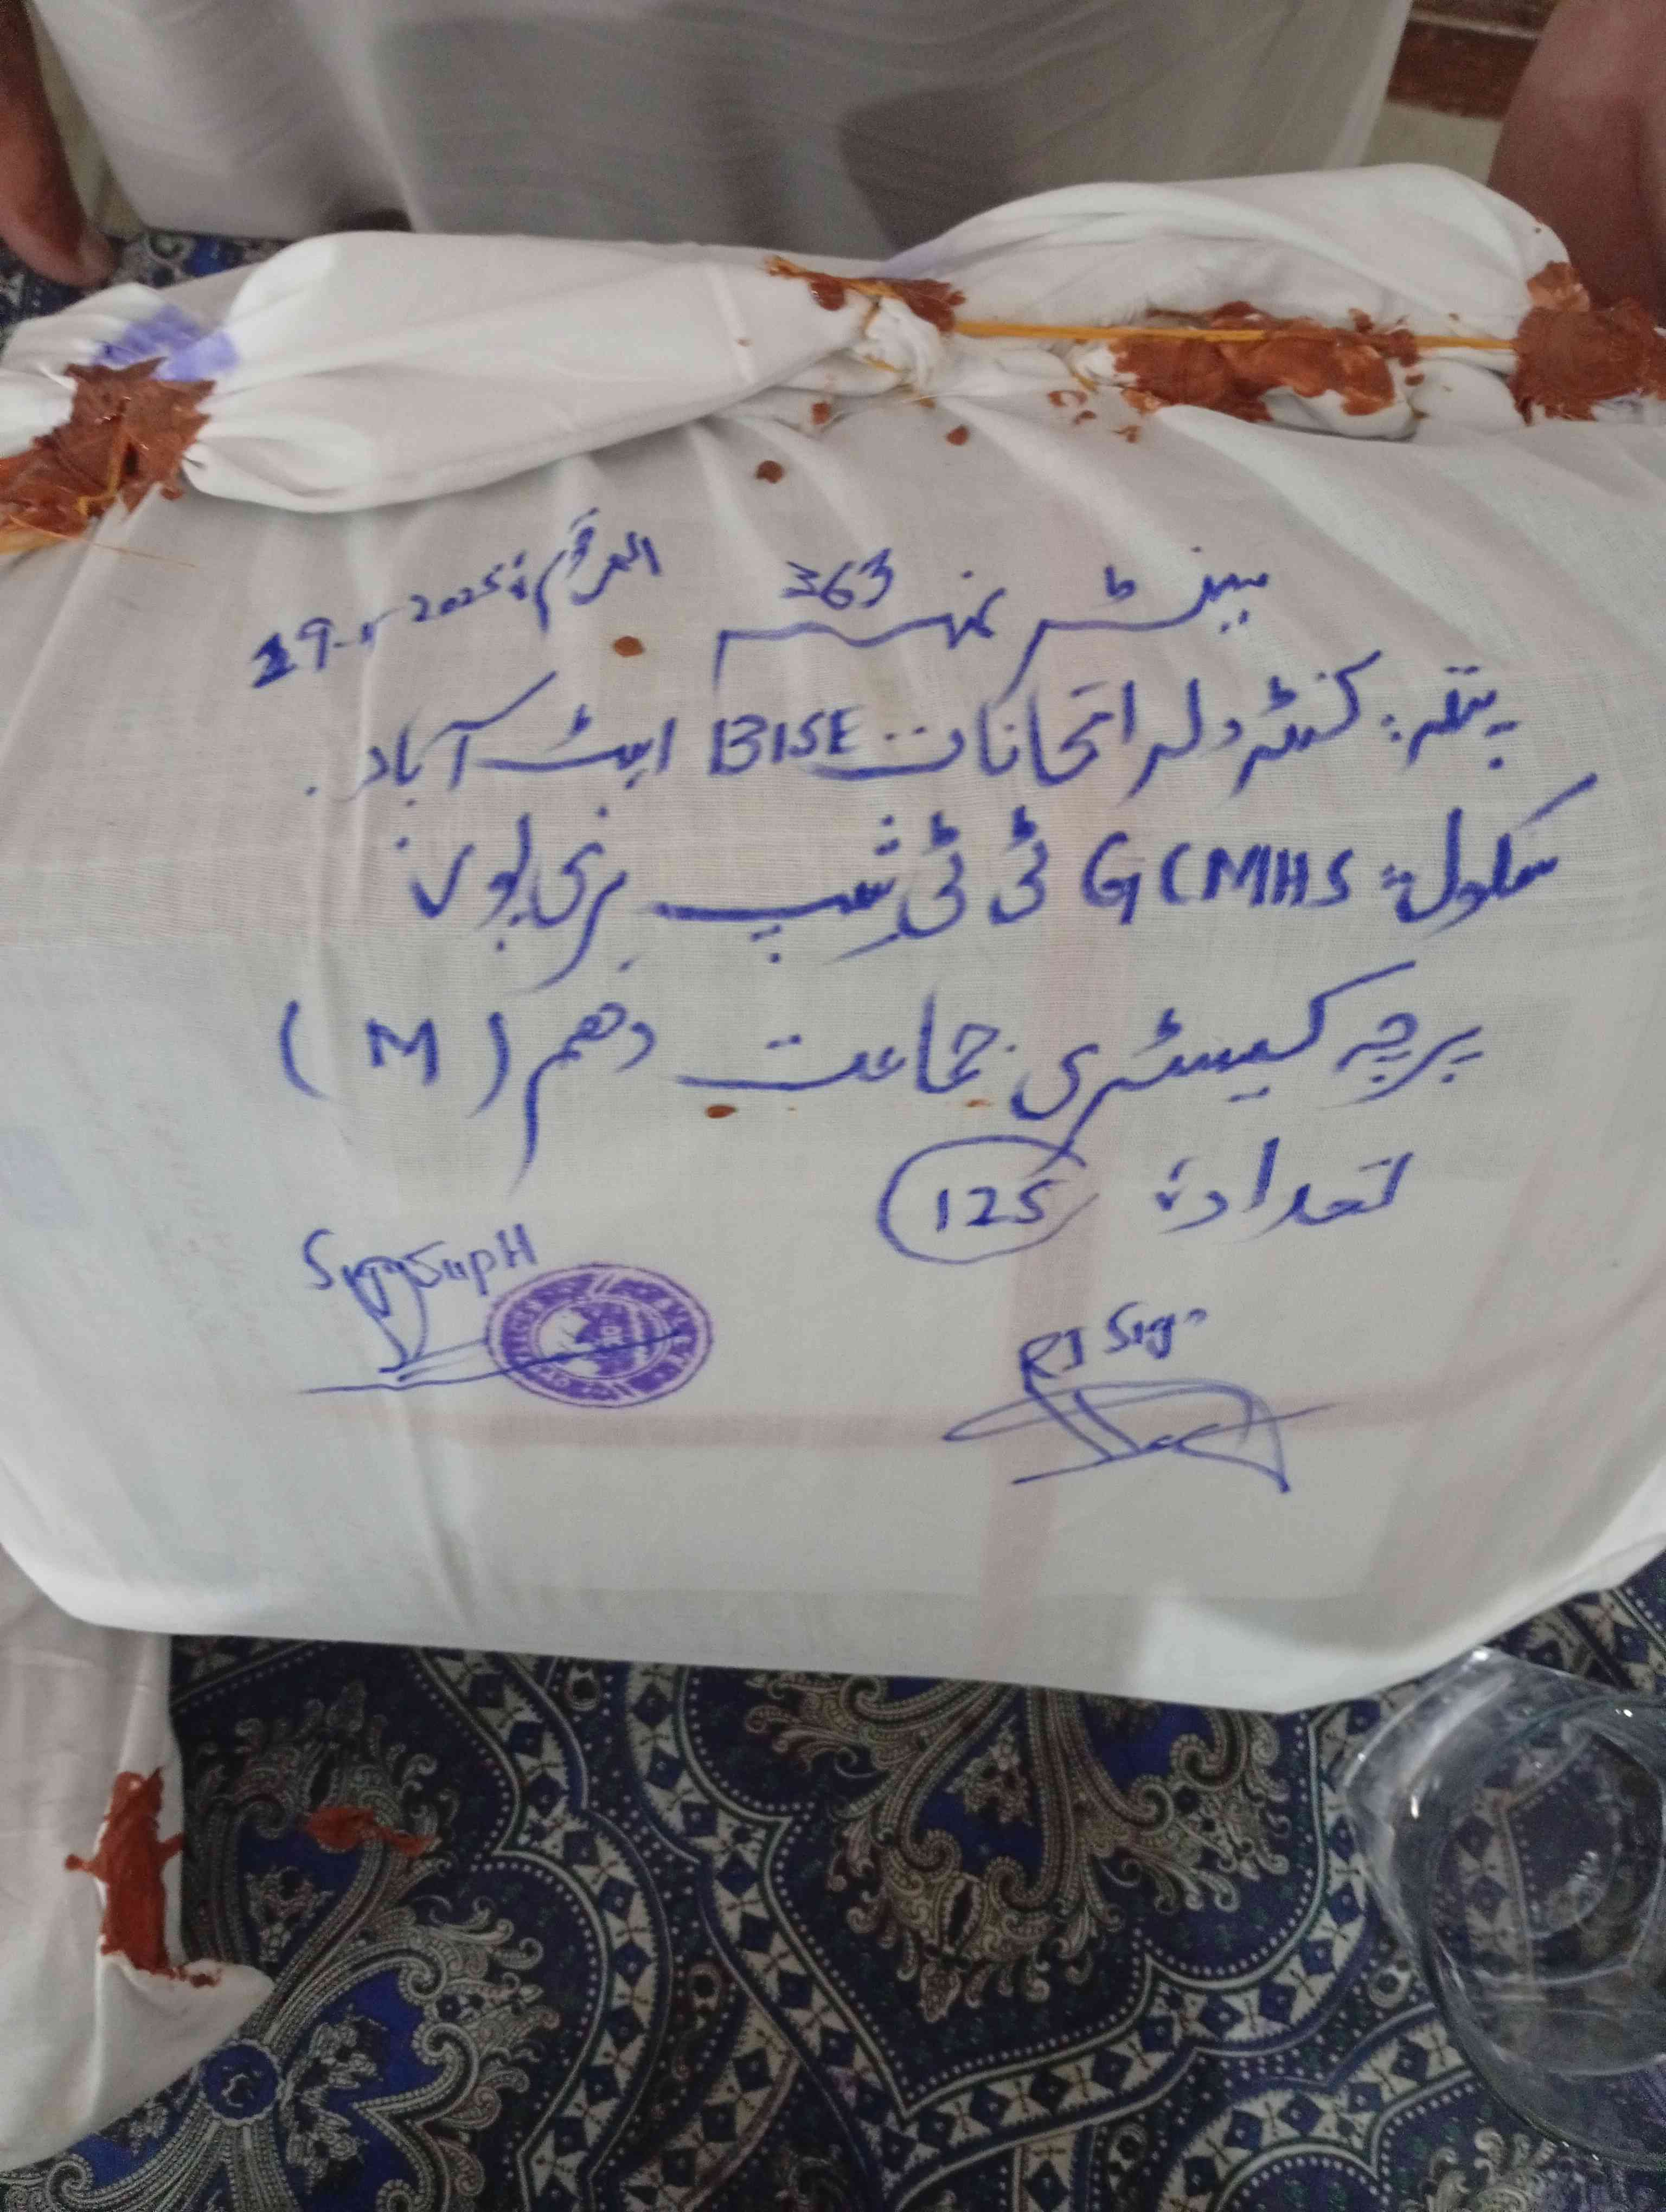 سینٹر نمبر 363 المرقوم: 2025-5-19
پتہ: کنٹرولر امتحانات BISE ایبٹ آباد.
سکول: GCMHS ٹی ٹی شپ ہری پور
پرچہ کیمسٹری جماعت دھم (M)
تعداد: 125
Sign Supdt
RI Sign